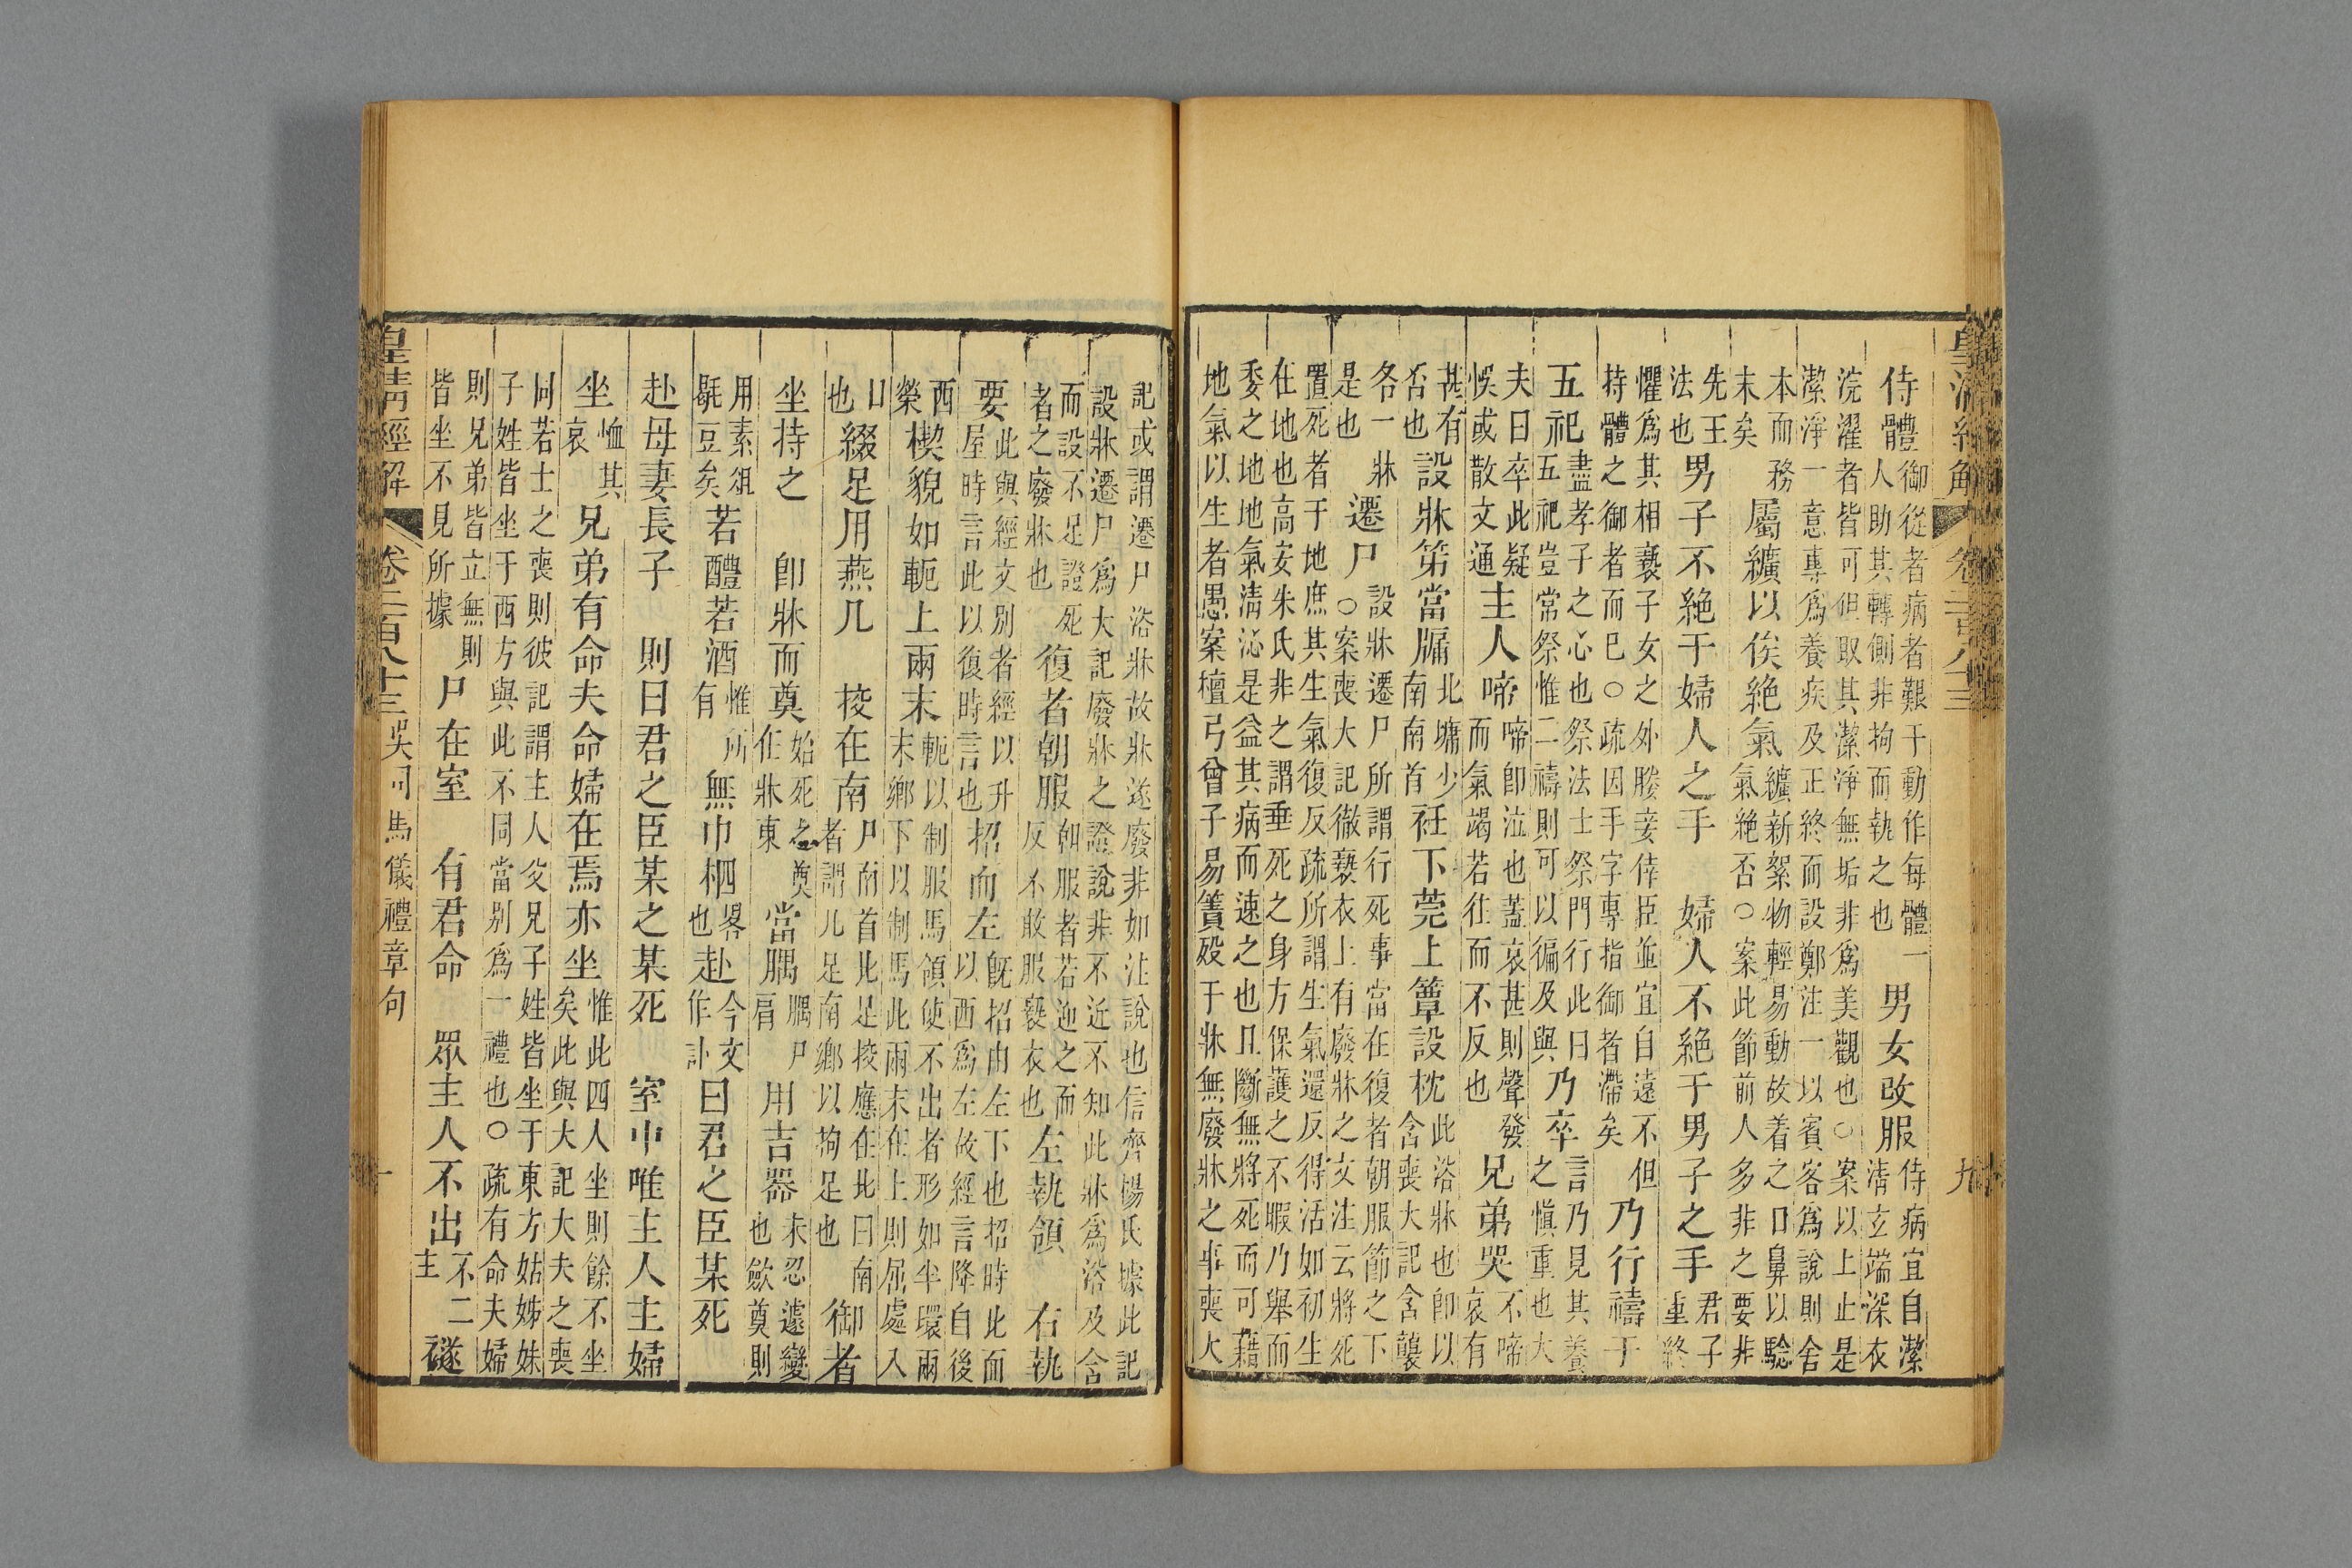 皇清經解 卷二百八十三 九
侍體御從者病者艱于動作每體一人助其轉側非拘而執之也男女改服侍病宜自潔清玄端深衣
浣濯者皆可但取其潔淨無垢非爲美觀也○案以上止是潔淨一意專爲養疾及正終而設鄭注一以賓客爲說則舍
本而務末矣屬纊以俟絶氣纊新絮物輕易動故着之口鼻以驗氣絶否○案此節前人多非之要非
先王法也男子不絶于婦人之手 婦人不絶于男子之手君子重終
懼爲其相褻子女之外媵妾倖臣並宜自遠不但持體之御者而已○疏因手字專指御者滯矣乃行禱于
五祀盡孝子之心也祭法士祭門行此曰五祀豈常祭惟二禱則可以徧及與乃卒言乃見其養之愼重也大
夫曰卒此疑悞或散文通主人啼啼卽泣也蓋哀甚則聲發而氣竭若往而不反也兄弟哭不啼哀有
甚有否也設牀第當牖北墉少南南首衽下莞上簟設枕此浴牀也卽以含喪大記含襲
各一牀是也遷尸設牀遷尸所謂行死事當在復者朝服節之下○案喪大記徹褻衣上有廢牀之文注云將死
置死者于地庶其生氣復反疏所謂生氣還反得活如初生在地也高安朱氏非之謂垂死之身方保護之不暇乃舉而
委之地地氣清沁是益其病而速之也且斷無將死而可藉地氣以生者愚案檀弓曾子易簀殁于牀無廢牀之事喪大
記或謂遷尸浴牀故牀遂廢非如注說也信齊楊氏據此記設牀遷尸爲大記廢牀之證說非不近不知此牀爲浴及含
而設不足證死者之廢牀也復者朝服朝服者若迎之而反不敢服褻衣也左執領 右執
要此與經文別者經以升屋時言此以復時言也招而左既招由左下也招時北面以西爲左故經言降自後
西榮楔貌如軛上兩末軛以制服馬領使不出者形如半環兩末鄉下以制馬此兩末在上則屈處入
口也綴足用燕几 校在南尸南首北足校應在北曰南者謂几足南鄉以拘足也御者
坐持之 卽牀而奠始死之奠在牀東當腢腢尸肩用吉器未忍遽變也歛奠則
用素俎毼豆矣若醴若酒惟所有無巾柶畧也赴今文作訃曰君之臣某死
赴母妻長子 則曰君之臣某之某死 室中唯主人主婦
坐恤其哀兄弟有命夫命婦在焉亦坐惟此四人坐則餘不坐矣此與大記大夫之喪
同若士之喪則彼記謂主人父兄子姓皆坐于東方姑姊妹子姓皆坐于西方與此不同當別爲一禮也○疏有命夫婦
則兄弟皆立無則皆坐不見所據尸在室 有君命 眾主人不出不二主襚
皇清經解 卷二百八十三 吳司馬儀禮章句 十